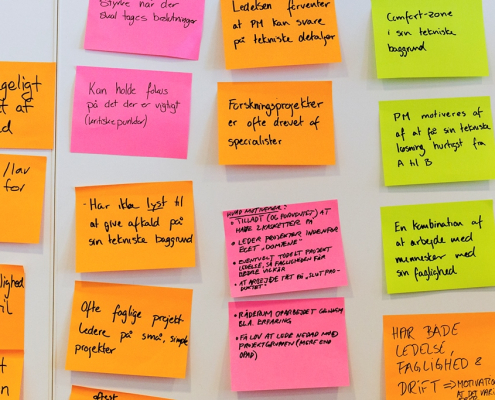 Styrke når der
skal tages beslutninger
Ledelsen forventer
at PM kan svare
på tekniske detaljer
Comfort-zone
i sin tekniske
baggrund
Kan holde fokus
på det der er vigtigt
(kritiske punkter)
Forskningsprojekter
er ofte drevet af
specialister
PM motiveres af
af at få sin tekniske
løsning hurtigst fra
A til B
geligt
et af
d
/lav
for
- Har ikke lyst til
at give afkald på
sin tekniske baggrund
HVAD MOTIVERER:
• TILLADT (OG FORVENTET) AT
HAVE 2 KASKETTER PÅ
• LEDER PROJEKTER INDENFOR
EGET "DOMÆNE"
• EVENTUELT TODELT PROJEKT
LEDELSE, SÅ FAGLIGHEDEN FÅR
BEDRE VILKÅR
• AT ARBEJDE TÆT PÅ "SLUT PRO-
DUKTET"
En kombination af
at arbejde med
mennesker med
sin faglighed
lighed
til
Ofte faglige projekt-
ledere på små, simple
projekter
• RÅDERUM OPARBEJDET GENNEM
BLA. ERFARING
• FÅ LOV AT LEDE NEDAD MOD
PROJEKTGRUPPEN (MERE END
OPAD)
HAR BÅDE
LEDELSE,
FAGLIGHED &
DRIFT => MOTIVATION
AT DET VAR
oftest